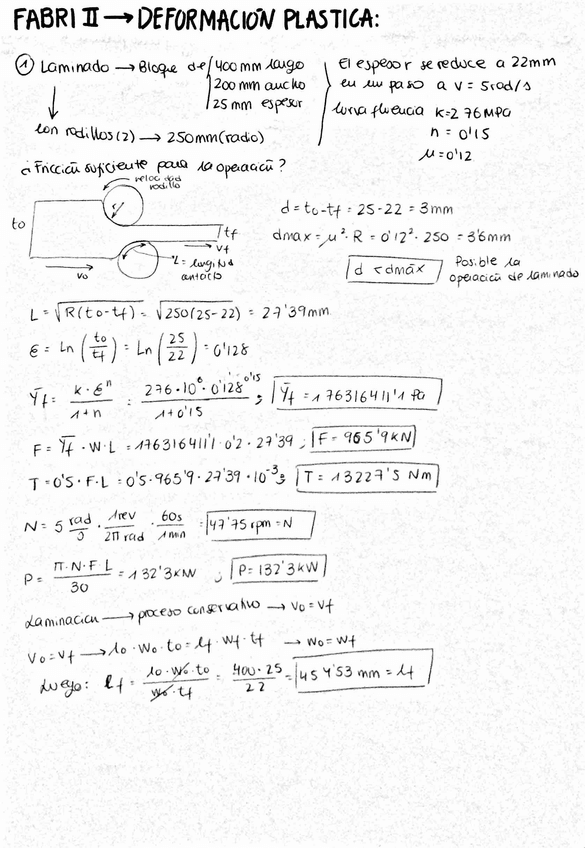 FABRI II → DEFORMACIÓN PLASTICA:
① Laminado → Bloque de 400 mm largo
200 mm ancho
25 mm espesor
con rodillos (2) → 250mm (radio)
El espesor se reduce a 22mm
en un paso a v = 5rad/s
Curva fluencia K=276MPa
n = 0'15
μ=0'12
¿Fricción suficiente para la operación?
velocidad
rodillo
r
to
tf
vf
vo
L = longitud
contacto
d = to-tf = 25-22 = 3mm
dmax = μ²·R = 0'12²·250 = 3'6mm
d < dmáx
Posible la
operación de laminado
L = √R(to-tf) = √250(25-22) = 27'39mm
ϵ = Ln (to/tf) = Ln (25/22) = 0'128
Ȳf = K·ϵⁿ/1+n = 276·10⁶·0'128^0'15/1+0'15 ; Ȳf = 176316411'1 Pa
F = Ȳf·W·L = 176316411'1·0'2·27'39 ; F = 965'9kN
T = 0'5·F·L = 0'5·965'9·27'39·10⁻³ ; T = 13227'5 Nm
N = 5 rad/s · 1rev/2π rad · 60s/1min = 47'75 rpm = N
P = π·N·F·L/30 = 132'3kW ; P = 132'3kW
Laminación → proceso conservativo → Vo = Vf
Vo = Vf → lo·wo·to = lf·wf·tf → wo = wf
Luego: lf = lo·wo·to/wo·tf = 400·25/22 = 454'53 mm = lf